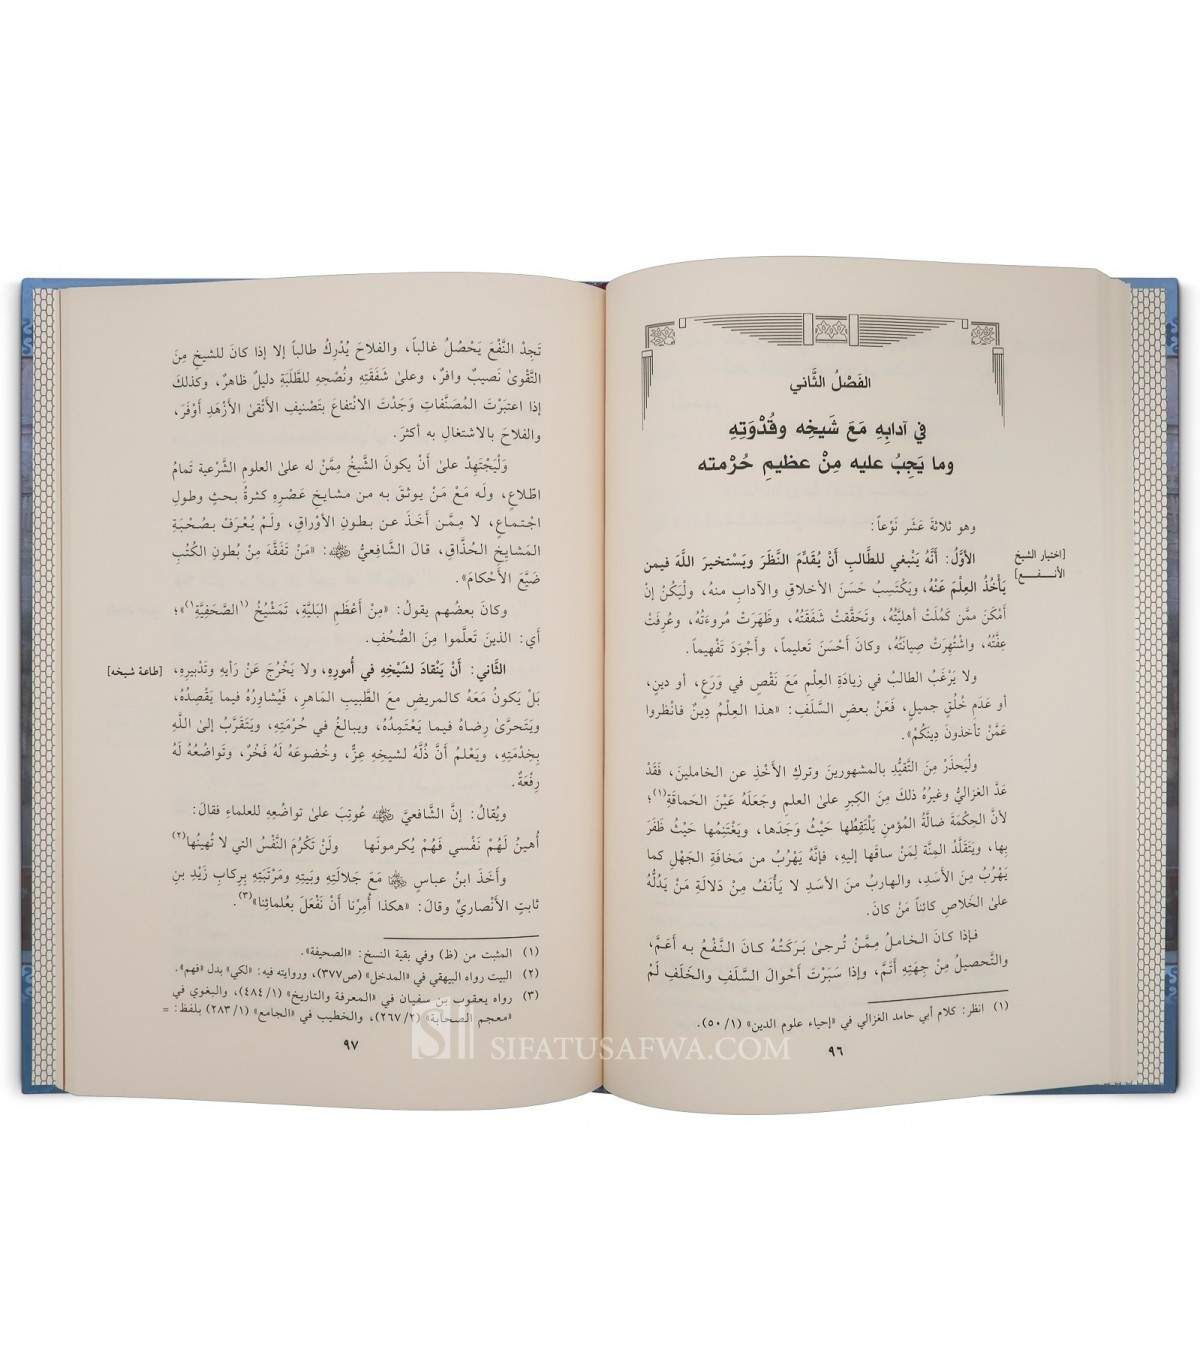 الفَصْلُ الثَّاني
في آدابِهِ مَعَ شَيخِه وقُدْوَتِهِ
وما يَجِبُ عليه مِنْ عظيمِ حُرْمته
وهو ثلاثةَ عَشَر نَوْعاً:
[اختيار الشيخ
الأنـفـع]
الأوَّلُ: أنَّهُ يَنْبغي للطَّالبِ أنْ يُقدِّمَ النَّظَرَ ويَسْتخيرَ اللَّهَ فيمن
يَأْخُذُ العِلْمَ عَنْهُ، ويَكْتَسِبُ حَسَنَ الأخلاقِ والآدابِ منهُ، ولْيَكُنْ إنْ
أمْكَنَ ممَّن كَمُلَتْ أهليَّتُهُ، وتَحَقَّقتْ شَفَقَتُهُ، وظَهَرَتْ مُروءَتُهُ، وعُرِفَتْ
عِفَّتُهُ، واشْتُهِرَتْ صِيانَتُهُ، وكانَ أحْسَنَ تَعليماً، وأجْوَدَ تَفْهيماً.
ولا يَرْغَبُ الطالبُ في زيادَةِ العِلْمِ مَعَ نَقْصٍ في وَرَعٍ، أو دينٍ،
أو عَدَمِ خُلُقٍ جميلٍ، فَعَنْ بعضِ السَّلَفِ: «هذا العِلْمُ دِينٌ فانْظروا
عَمَّنْ تأخذونَ دِينَكُمْ».
ولْيَحذَرْ مِنَ التَّقيُّدِ بالمشهورينَ وتركِ الأخْذِ عن الخاملينَ، فَقَدْ
عَدَّ الغزاليُّ وغيرُهُ ذلكَ مِنَ الكِبرِ على العلمِ وجَعَلَهُ عَيْنَ الحَماقَةِ(١)؛
لأنَّ الحِكْمَةَ ضالَّةُ المُؤمنِ يَلْتَقِطُها حَيْثُ وَجَدَها، ويَغْتَنِمُها حَيْثُ ظَفَرَ
بِها، ويَتَقَلَّدُ المِنَّةَ لِمَنْ ساقَها إليهِ، فإنَّهُ يَهْرُبُ من مَخافَةِ الجَهْلِ كما
يَهْرُبُ مِنَ الأسَدِ، والهاربُ منَ الأسَدِ لا يَأْنَفُ مِنْ دَلالةِ مَنْ يَدُلُّهُ
على الخَلاصِ كائناً مَنْ كانَ.
فـإذا كانَ الخـاملُ مِمَّنْ تُرجىٰ بَرَكَتُهُ كانَ النَّفْعُ بـه أَعَمَّ،
والتَّحصيلُ مِنْ جِهَتِهِ أتَمَّ، وإذا سَبَرْتَ أحْوالَ السَّلَفِ والخَلَفِ لَمْ
(١) انظر: كلام أبي حامد الغزالي في «إحياء علوم الدين» (١/ ٥٠).
٩٦
تَجِدْ النَّفْعَ يَحْصُلُ غالباً، والفلاحَ يُدْرِكُ طالباً إلا إذا كانَ للشيخِ مِنَ
التَّقْوىٰ نَصيبٌ وافرٌ، وعلىٰ شَفَقَتِهِ ونُصْحِهِ للطَّلَبَةِ دليلٌ ظاهرٌ، وكذلكَ
إذا اعتبَرْتَ المُصَنَّفاتِ وَجَدْتَ الانْتفاعَ بتَصْنيفِ الأتْقىٰ الأزْهَدِ أوْفَرَ،
والفلاحَ بالاشتغالِ به أكثرَ.
ولْيَجْتهِدْ علىٰ أنْ يكونَ الشَّيخُ مِمَّنْ له علىٰ العلومِ الشَّرْعيةِ تَمامُ
اطِّلاعٍ، ولَه مَعْ مَنْ يوثقُ به من مشايخِ عَصْرِهِ كثرةُ بحثٍ وطولِ
اجْتماعٍ، لا مِمَّن أخَذَ عن بطونِ الأوْراقِ، ولَمْ يُعْرَفْ بصُحْبَةِ
المَشايخِ الحُذَّاقِ، قالَ الشَّافِعيُّ ﷺ: «مَنْ تَفَقَّهَ مِنْ بُطونِ الكُتُبِ
ضَيَّعَ الأحْكامَ».
وكانَ بعضُهم يقولُ: «مِنْ أعْظَمِ البَليَّةِ، تَمَشْيُخُ (١)الصَّحَفِيَّةِ(١)»؛
أي: الذينَ تَعلَّموا مِنَ الصُّحُفِ.
الثَّاني: أنْ يَنْقادَ لشَيْخِهِ في أُمورِهِ، ولا يَخْرُجَ عَنْ رَأيهِ وتَدْبيرِهِ،
[طاعة شيخه]
بَلْ يَكونُ مَعَهُ كالمريضِ معَ الطَّبيبِ المَاهرِ، فَيُشاوِرُهُ فيما يَقْصِدُهُ،
ويَتَحرَّىٰ رِضاهُ فيما يَعْتَمِدُهُ، ويبالغُ في حُرْمَتِهِ، ويَتَقَرَّبُ إلىٰ اللَّهِ
بِخِدْمَتِهِ، ويَعْلمُ أنَّ ذُلَّهُ لشيخِهِ عِزٌّ، وخُضوعَهُ لَهُ فَخْرٌ، وتَواضُعُهُ لَهُ
رِفْعَةٌ.
ويُقالُ: إنَّ الشَّافعيَّ عُوتِبَ علىٰ تَواضُعِهِ للعلماءِ فقالَ:
أُهينُ لَهُمْ نَفْسي فَهُمْ يُكرمونَها ولَنْ تَكْرُمَ النَّفْسُ التي لا تُهينُها(٢)
وأخَذَ ابنُ عباسٍ مَعَ جَلالَتِهِ وبَيتِهِ ومَرْتَبَتِهِ بِركابِ زَيْدِ بنِ
ثابتٍ الأنْصاريِّ وقالَ: «هكذا أُمِرْنا أنْ نَفْعَلَ بعُلمائِنا»(٣).
(١) المثبت من (ظ) وفي بقية النسخ: «الصحيفة».
(٢) البيت رواه البيهقي في «المدخل» (ص٣٧٧)، وروايته فيه: «لكي» بدل «فهم».
(٣) رواه يعقوب بن سفيان في «المعرفة والتاريخ» (١/ ٤٨٤)، والبغوي في
«معجم الصحابة» (٢/ ٢٦٧)، والخطيب في «الجامع» (١/ ٢٨٣) بلفظ: =
٩٧
SIFATUSAFWA.COM